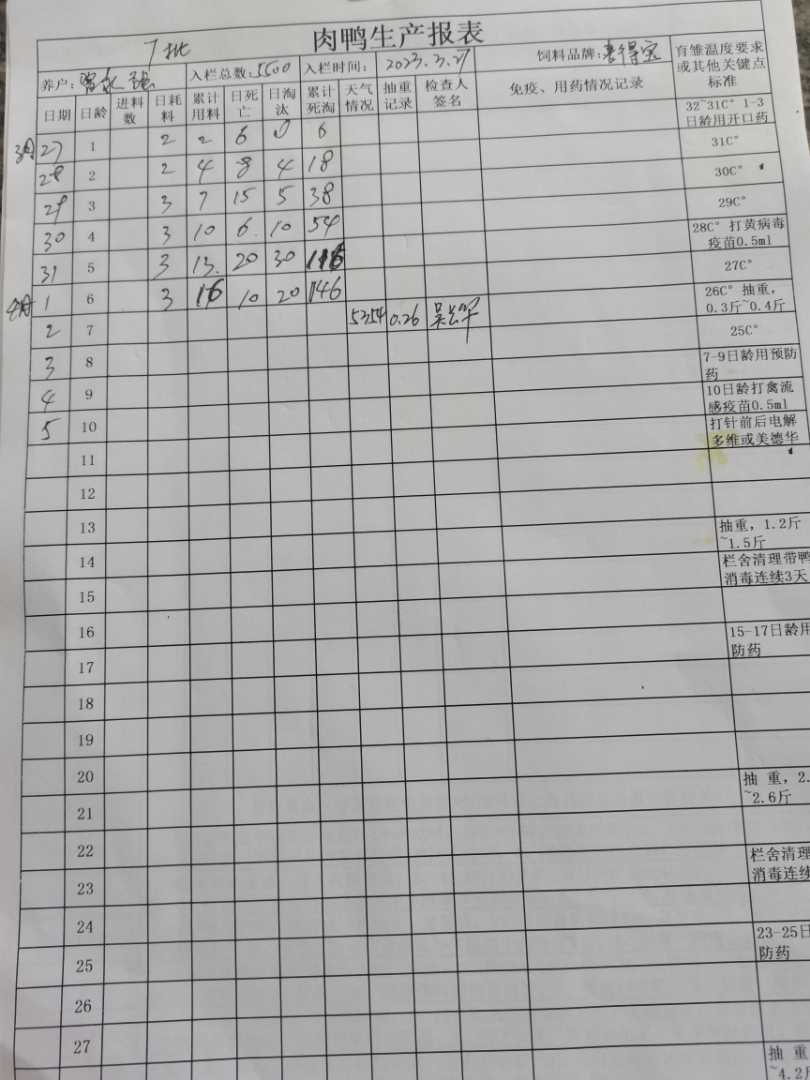 7批
肉鸭生产报表
养户: 入栏总数:5500 入栏时间: 2023.3.27 饲料品牌: 得宝 育雏温度要求或其他关键点标准
日期 日龄 进料数 日耗料 累计用料 日死亡 日淘汰 累计死淘 天气情况 抽重记录 检查人签名 免疫、用药情况记录
32~31C° 1-3日龄用开口药
3月 27 1 2 2 6 0 6 31C°
28 2 2 4 8 4 18 30C°
29 3 3 7 15 5 38 29C°
30 4 3 10 6 10 54 28C° 打黄病毒疫苗0.5ml
31 5 3 13 20 30 116 27C°
4月 1 6 3 16 10 20 146 26C° 抽重，0.3斤~0.4斤
2 7 5354 0.26 25C°
3 8 7-9日龄用预防药
4 9 10日龄打禽流感疫苗0.5ml
5 10 打针前后电解多维或美德华
11
12
13 抽重，1.2斤~1.5斤
14 栏舍清理带鸭消毒连续3天
15
16 15-17日龄用防药
17
18
19
20 抽 重，2.
21 ~2.6斤
22
23 栏舍清理 消毒连续
24
25 23-25日 防药
26
27
抽 重
~4.2